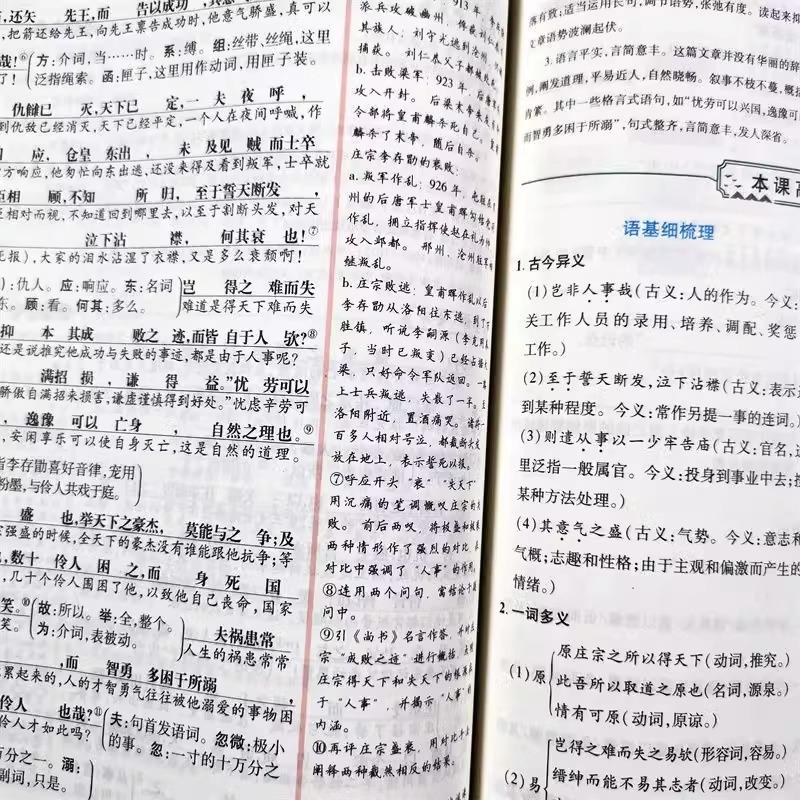 ，还矢 先王，而 告以成功，其意
，把箭还给先王，向先王禀告成功时，他意气骄盛，真可以
哉！⑥ 方：介词，当……时。系：缚。组：丝带、丝绳，这里
了！ 泛指绳索。函：匣子，这里用作动词，用匣子装。
仇雠已 灭，天下已 定，一 夫 夜 呼，
到仇敌已经消灭，天下已经平定，一个人在夜间呼喊，作
应，仓皇 东出 ，未 及见 贼 而士卒
方响应，他匆忙向东出逃，还没来得及看到叛军，士卒就
相 顾，不知 所 归，至于誓天断发，
臣相对而视，不知道回到哪里去，以至于割断头发，对天
泣下沾 襟，何其衰 也！⑦
死报），大家的泪水沾湿了衣襟，又是多么衰颓啊！
：仇人。应：响应。东：名词 岂 得之 难而失
东。顾：看。何其：多么。 难道是得天下难而失
抑 本 其成 败之 迹，而皆 自于人 欤？⑧
还是说推究他成功与失败的事迹，都是由于人事呢？
满招 损，谦 得 益。”忧 劳可以
骄傲自满招来损害，谦虚谨慎得到好处。”忧虑辛劳可
逸豫 可以 亡身， 自然之理也。⑨
，安闲享乐可以使自身灭亡，这是自然的道理。
指李存勖喜好音律，宠用
粉墨，与伶人共戏于庭。
盛 也，举天下之豪杰，莫能与之 争；及
强盛的时候，全天下的豪杰没有谁能跟他抗争；等
，数十 伶人 困 之，而 身 死 国
几十个伶人围困了他，以致他自己丧命，国家
笑。⑩ 故：所以。举：全，整个。
笑。 为：介词，表被动。
夫祸患常
人生的祸患常常
，而 智勇 多困于所溺，
累起来的，人的才智勇气往往被他溺爱的事物困
伶人 也哉？⑪ 夫：句首发语词。忽微：极小
伶人才如此吗？ 的事。忽：一寸的十万分之
万分之一。溺：
副词，只是。
派兵攻破幽州，俘获刘仁恭及
其族人；刘守光逃到沧州，
捕获。刘仁恭父子都被
b.击败梁军：923年，后唐
攻入开封。后梁末帝
令部将皇甫麟杀死自己。皇甫
麟杀了末帝，随后自杀。
庄宗李存勖的衰败：
a.叛军作乱：926年，
州的后唐军士皇甫晖勾结党羽
作乱，拥立指挥使赵在礼为帅
攻入邺都。邢州、沧州驻军
继叛乱。
b.庄宗败逃：皇甫晖作乱以后
李存勖从洛阳往东逃，到了万
胜镇，听说李嗣源（李克用养
子，当时已叛变）已经占据大
梁，只好命令军队返回。
上士兵叛逃，失散了一半。
洛阳附近，置酒痛哭。诸将一
百多人相对号泣，都截断头发
放在地上，表示誓死以报。
⑦呼应开头“衰”“失天下”
用沉痛的笔调慨叹庄宗的失
败。前后两叹，将极盛和极衰
两种情形作了强烈的对比，在
对比中强调了“人事”的作用。
⑧连用两个问句，寓结论于疑
问中。
⑨引《尚书》名言作答，并对庄
宗“成败之迹”进行概括，
庄宗得天下和失天下的根源在
于“人事”，并揭示“人事”的
内涵。
⑩再评庄宗盛衰，用对比手法
阐释两种截然相反的结果。
落有致；适当运用长句，调节语势，张弛有度。读起来抑
文章语势波澜起伏。
3.语言平实，言简意丰。这篇文章并没有华丽的辞
例，阐发道理，平易近人，自然晓畅。叙事不枝不蔓，概括
肯綮。其中一些格言式语句，如“忧劳可以兴国，逸豫可
而智勇多困于所溺”，句式整齐，言简意丰，发人深省。
本课高
语基细梳理
1.古今异义
(1)岂非人事哉（古义：人的作为。今义：
关工作人员的录用、培养、调配、奖惩
工作。）
(2)至于誓天断发，泣下沾襟（古义：表示达
到某种程度。今义：常作另提一事的连词。）
(3)则遣从事以一少牢告庙（古义：官名，这
里泛指一般属官。今义：投身到事业中去；按
某种方法处理。）
(4)其意气之盛（古义：气势。今义：意志和
气概；志趣和性格；由于主观和偏激而产生的
情绪。）
2.一词多义
(1)原
原庄宗之所以得天下（动词，推究。）
此吾所以取道之原也（名词，源泉。）
情有可原（动词，原谅。）
(2)易
岂得之难而失之易欤（形容词，容易。）
缙绅而能不易其志者（动词，改变。）